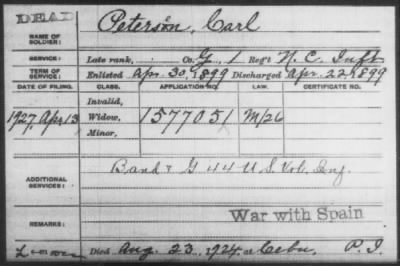 DEAD
NAME OF SOLDIER: Peterson, Carl
SERVICE: Late rank, Co. G, 1 Reg't N.C. Inft
TERM OF SERVICE: Enlisted Apr. 30, 1899 Discharged Apr. 22, 1899
DATE OF FILING. CLASS. APPLICATION NO. LAW. CERTIFICATE NO.
Invalid,
1927, Apr 13 Widow, 1577051 M/26
Minor,
ADDITIONAL SERVICES: Band & G 44 U.S. Vol. Inf.
REMARKS: War with Spain
Died Aug. 23, 1924, at Cebu, P.I.